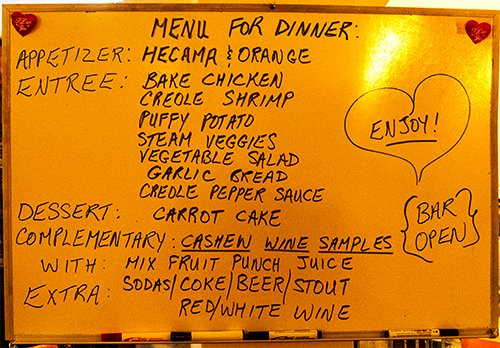 MENU FOR DINNER:
APPETIZER: HECAMA & ORANGE
ENTREE: BAKE CHICKEN
CREOLE SHRIMP
PUFFY POTATO
STEAM VEGGIES
VEGETABLE SALAD
GARLIC BREAD
CREOLE PEPPER SAUCE
ENJOY!
DESSERT: CARROT CAKE
COMPLEMENTARY: CASHEW WINE SAMPLES
WITH: MIX FRUIT PUNCH JUICE
EXTRA: SODAS/COKE/BEER/STOUT
RED/WHITE WINE
{BAR
OPEN}